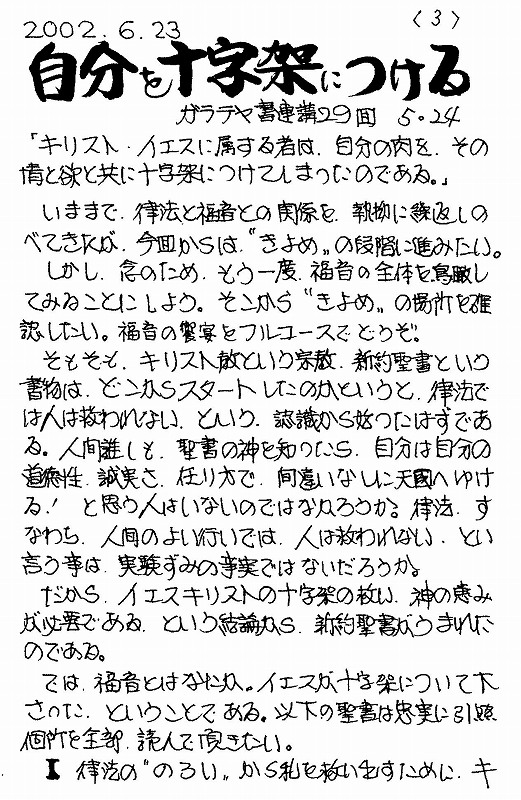 2002.6.23
〈3〉
自分を十字架につける
ガラテヤ書連講29回 5・24
「キリスト・イエスに属する者は、自分の肉を、その
情と欲と共に十字架につけてしまったのである。」
いままで、律法と福音との関係を、執拗に繰返しの
べてきたが、今回からは、"きよめ"の段階に進みたい。
しかし、念のため、もう一度、福音の全体を鳥瞰し
てみることにしよう。そこから"きよめ"の場所を確
認したい。福音の饗宴をフルコースでどうぞ。
そもそも、キリスト教という宗教、新約聖書という
書物は、どこからスタートしたのかというと、律法で
は人は救われない、という、認識から始ったはずであ
る。人間誰しも、聖書の神を知ったら、自分は自分の
道徳性、誠実さ、在り方で、間違いなしに天国へゆけ
る! と思う人はいないのではなかろうか。律法、す
なわち、人間のよい行いでは、人は救われない、とい
言う事は、実験ずみの事実ではないだろうか。
だから、イエスキリストの十字架の救い、神の恵み
が必要である、という結論から、新約聖書がうまれた
のである。
では、福音とはなにか。イエスが十字架について下
さった、ということである。以下の聖書は忠実に引照
個所を全部、読んで頂きたい。
I 律法の"のろい"から私を救い出すために、キ